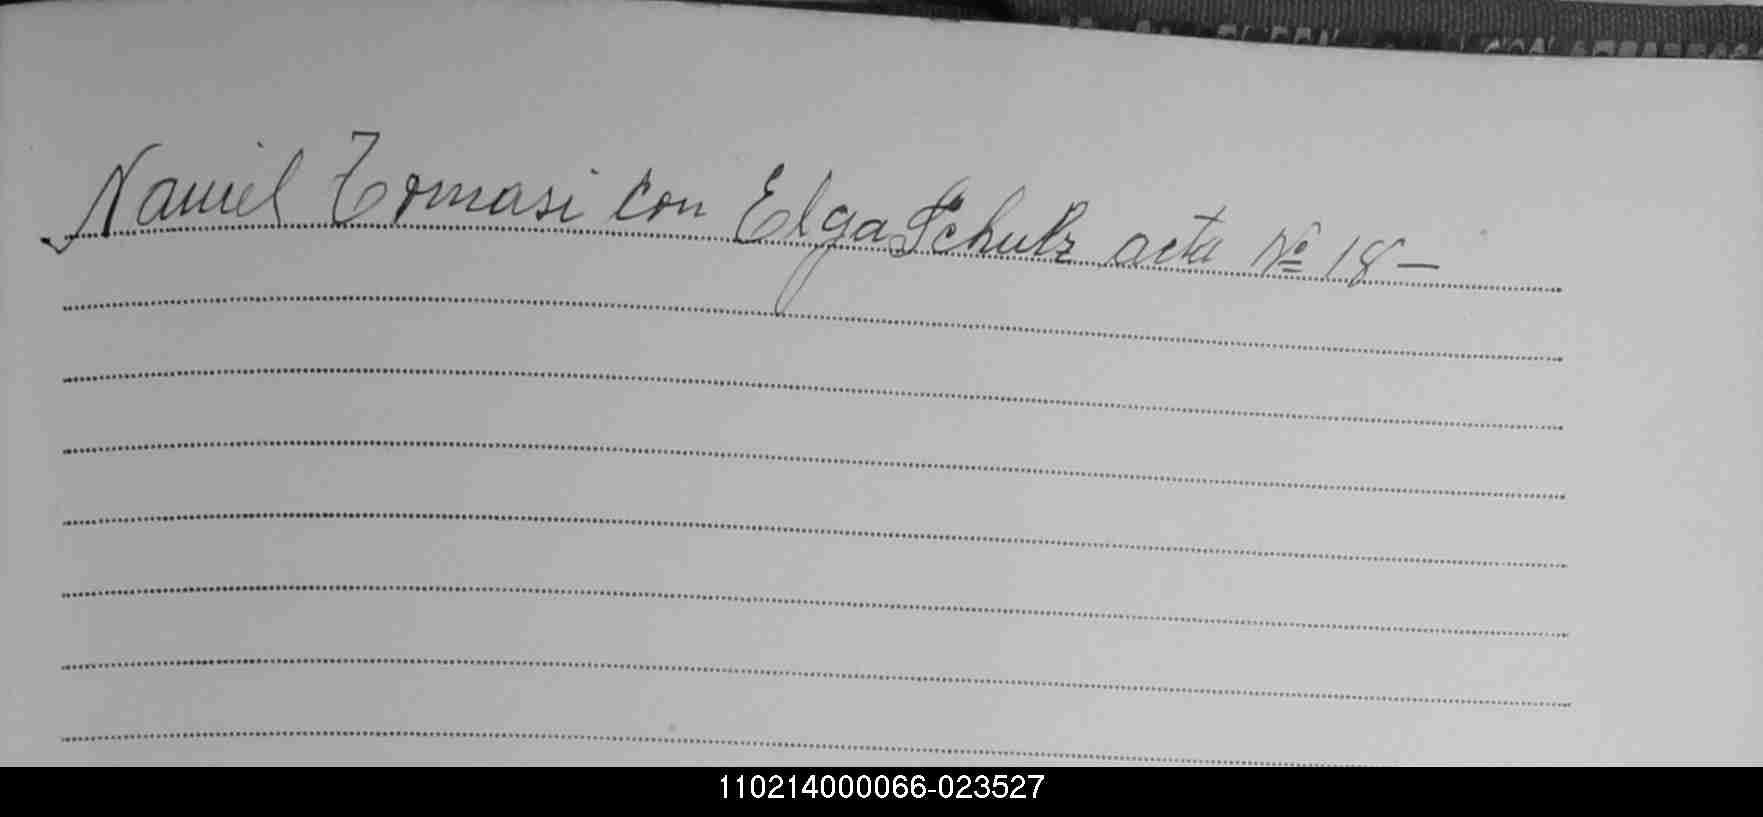 Daniel Tomasi con Elga Schulz acta Nº 18 —
110214000066-023527